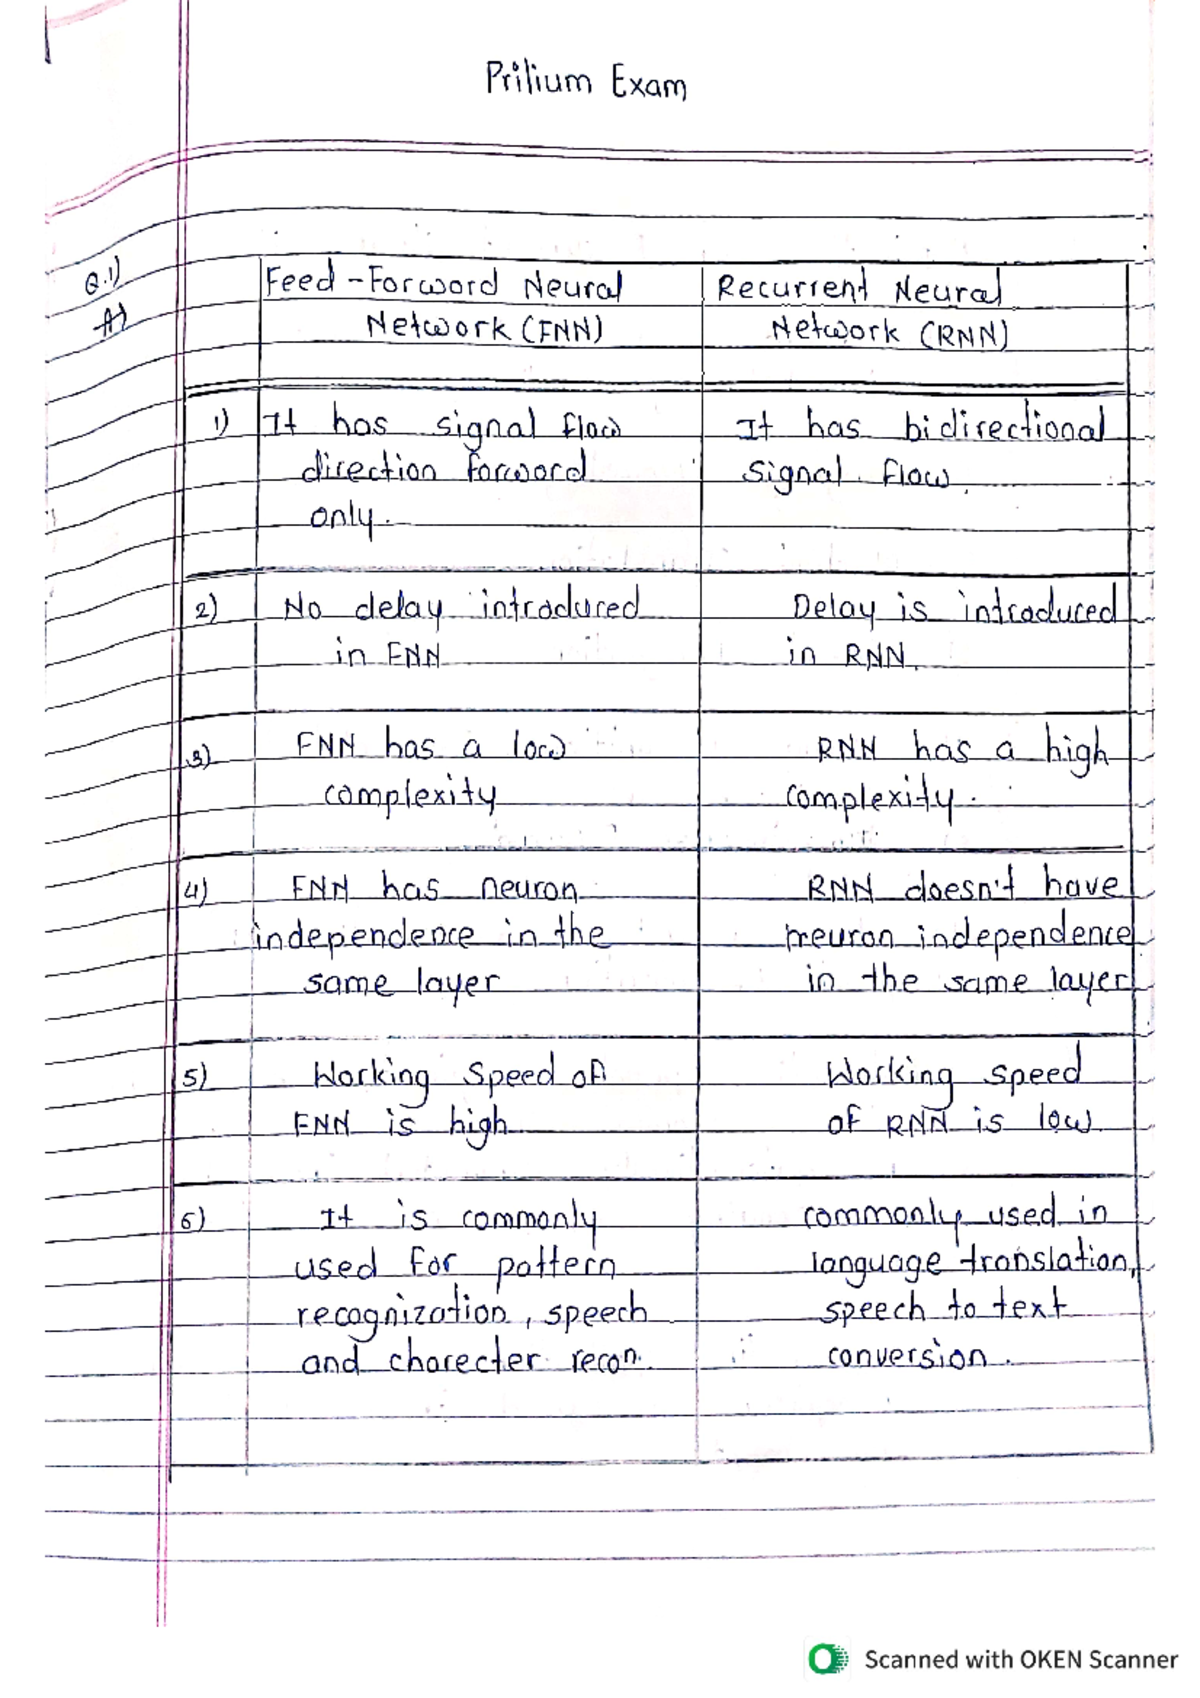 Prilium Exam
Q.1)
A)
Feed-Forword Neural
Network (FNN)
Recurrent Neural
Network (RNN)
1)
It has signal flow
direction forword
only.
It has bidirectional
signal flow.
2)
No delay introduced
in FNN
Delay is introduced
in RNN.
3)
FNN has a low
complexity
RNN has a high
complexity.
4)
FNN has neuron
independence in the
same layer
RNN doesn't have
neuron independence
in the same layer
5)
Working Speed of
FNN is high
Working speed
of RNN is low
6)
It is commonly
used for pattern
recognization, speech
and charecter recon.
commonly used in
language translation,
speech to text
conversion.
Scanned with OKEN Scanner